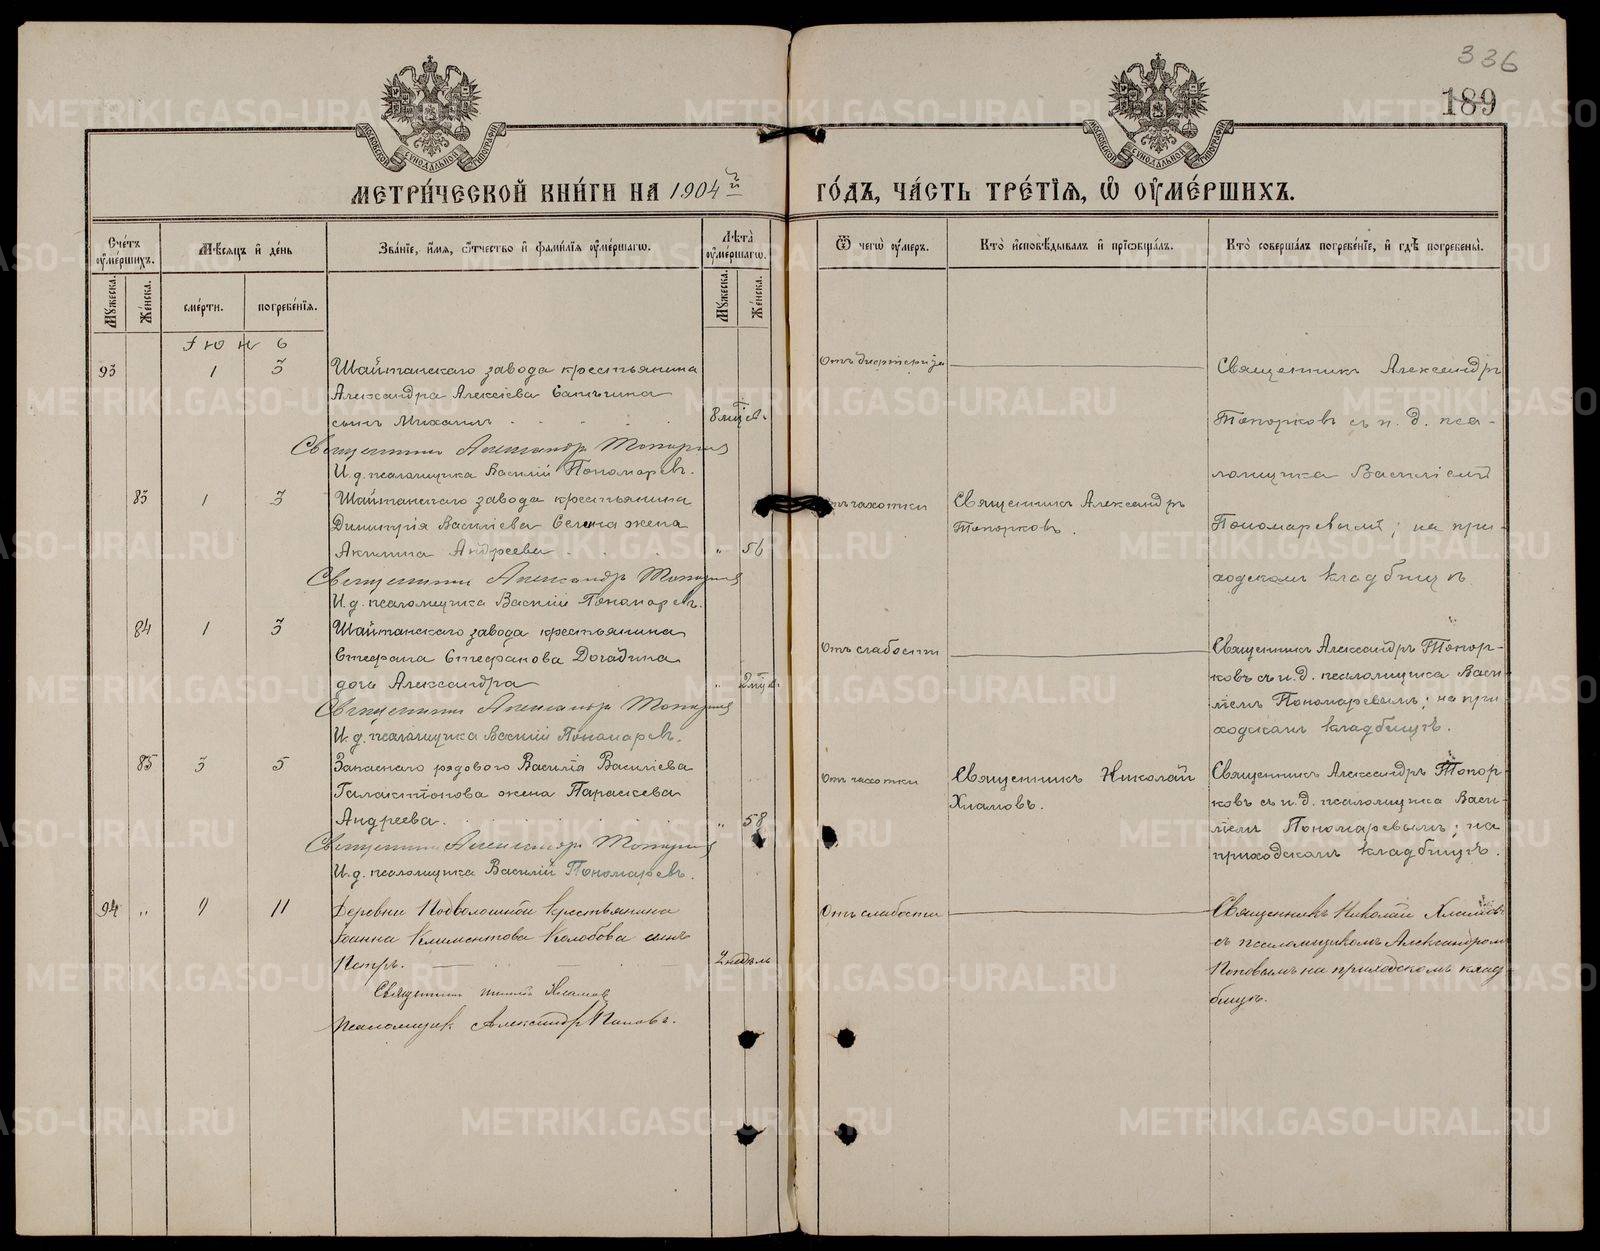 336
189
МЕТРИ́ЧЕСКОЙ КНИ́ГИ НА 1904й
ГО́ДЪ, ЧА́СТЬ ТРЕ́ТІѦ, Ѡ҆ ОУ҆МЕ́РШИХЪ.
Сче́тъ оу҆ме́ршихъ.
Мѣ́сѧцъ и҆ де́нь
Зва́нїе, и҆́мѧ, ѻ҆́тчество и҆ фами́лїѧ оу҆ме́ршагѡ.
Лѣ́та оу҆ме́ршагѡ.
Ѿ чегѡ̀ оу҆́меръ.
Кто̀ и҆сповѣ́дывалъ и҆ прїѡбща́лъ.
Кто̀ соверша́лъ погребе́нїе, и҆ гдѣ̀ погребены̀.
Мꙋ́жеска.
Же́нска.
сме́рти.
погребе́нїѧ.
Мꙋ́жеска.
Же́нска.
Іюнь
93 1 3 Шайтанскаго завода крестьянина
Александра Алексіева
сынъ Михаилъ 8 мѣсяц.
Священникъ Александр Топорков
И. д. псаломщика Василій Пономаревъ.
Отъ дифтерита
Священникъ Александръ
Топорковъ съ и. д. пса-
ломщика Василіемъ
Пономаревымъ; на при-
ходскомъ кладбищѣ.
83 1 3 Шайтанскаго завода крестьянина
Димитрія Василіева жена
Акилина Андреева " 56
Священникъ Александръ Топорков
И. д. псаломщика Василій Пономаревъ.
Отъ чахотки
Священникъ Александръ
Топорковъ.
84 1 3 Шайтанскаго завода крестьянина
Стефана Стефанова Догадина
дочь Александра " 2 мѣс.
Священникъ Александръ Топорков
И. д. псаломщика Василій Пономаревъ.
Отъ слабости
Священникъ Александръ Топор-
ковъ съ и. д. псаломщика Васи-
ліемъ Пономаревымъ; на при
ходскомъ кладбищѣ.
85 3 5 Запаснаго рядового Василія Василіева
Галактіонова жена Параскева
Андреева. " 58
Священникъ Александръ Топорков
И. д. псаломщика Василій Пономаревъ.
Отъ чахотки
Священникъ Николай
Хламовъ.
Священникъ Александръ Топор-
ковъ съ и. д. псаломщика Васи-
ліемъ Пономаревымъ; на
приходскомъ кладбищѣ.
94 " 9 11 Деревни Подволошной крестьянина
Іоанна Климентова Колобова сынъ
Петръ. 2 недѣль
Священникъ Николай Хламовъ
Псаломщик Александръ Поповъ.
Отъ слабости
Священникъ Николай Хламовъ
съ псаломщикомъ Александромъ
Поповымъ на приходскомъ клад
бищѣ.
METRIKI.GASO-URAL.RU